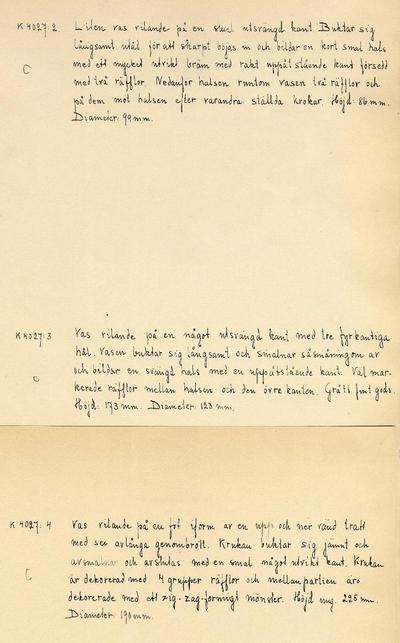 K 4027:2. Liten vas vilande på en svagt utsvängd kant. Buktar sig
långsamt utåt för att skarpt böjas in och bildar en kort smal hals
C
med ett mycket utvikt bräm med rakt uppåtstående kant försedd
med två räfflor. Nedanför halsen runtom vasen två räfflor och
på dem mot halsen efter varandra ställda krokar. Höjd: 86 mm.
Diameter: 99 mm.
K 4027:3 Vas vilande på en något utsvängd kant med tre fyrkantiga
hål. Vasen buktar sig långsamt och smalnar såsmåningom av
C och bildar en svängd hals med en uppåtstående kant. Väl mar-
kerade räfflor mellan halsen och den övre kanten. Grått fint gods.
Höjd: 173 mm. Diameter: 123 mm.
K 4027:4 Vas vilande på en fot iform av en upp och ner vänd tratt
med sex avlånga genombrott. Krukan buktar sig jämnt och
avsmalnar och avslutas med en smal något utvikt kant. Krukan
C
är dekorerad med 4 grupper räfflor och mellanpartien äro
dekorerade med ett zig-zag-formigt mönster. Höjd ung. 225 mm.
Diameter: 190 mm.